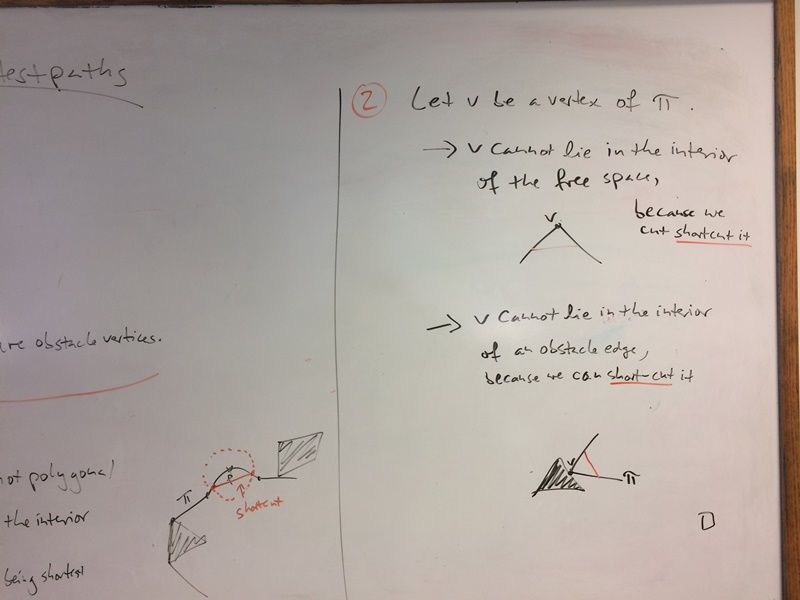 testpaths
are obstacle vertices.
not polygonal
the interior
being shortest
π
P
shortcut
② Let v be a vertex of π.
→ v cannot lie in the interior
of the free space,
because we
cut shortcut it
v
→ v cannot lie in the interior
of an obstacle edge,
because we can short-cut it
v
π